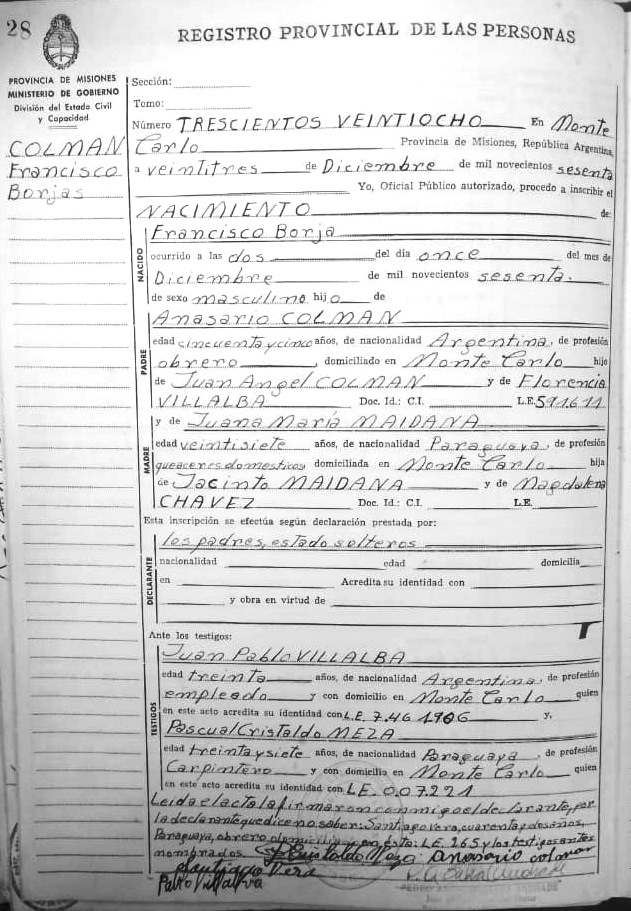 28
REGISTRO PROVINCIAL DE LAS PERSONAS
PROVINCIA DE MISIONES
MINISTERIO DE GOBIERNO
División del Estado Civil
y Capacidad
COLMAN
Francisco
Borjas
Sección:
Tomo:
Número TRESCIENTOS VEINTIOCHO En Monte
Carlo Provincia de Misiones, República Argentina,
a veintitres de Diciembre de mil novecientos sesenta
Yo, Oficial Público autorizado, procedo a inscribir el
NACIMIENTO de:
NACIDO
Francisco Borja
ocurrido a las dos del día once del mes de
Diciembre de mil novecientos sesenta.
de sexo masculino hijo de
PADRE
Anasario COLMAN
edad cincuenta y cinco años, de nacionalidad Argentina, de profesión
obrero, domiciliado en Monte Carlo hijo
de Juan Angel COLMAN y de Florencia
VILLALBA Doc. Id.: C.I. L.E. 591611
MADRE
y de Juana María MAIDANA
edad veintisiete años, de nacionalidad Paraguaya, de profesión
queaceres domesticos domiciliada en Monte Carlo hija
de Jacinto MAIDANA y de Magdalena
CHAVEZ Doc. Id.: C.I. L.E.
Esta inscripción se efectúa según declaración prestada por:
DECLARANTE
los padres, estado solteros
nacionalidad edad domicilia
en Acredita su identidad con
y obra en virtud de
Ante los testigos:
TESTIGOS
Juan Pablo VILLALBA
edad treinta años, de nacionalidad Argentina, de profesión
empleado y con domicilio en Monte Carlo quien
en este acto acredita su identidad con L.E. 7.461.906 y,
Pascual Cristaldo MEZA
edad treinta y siete años, de nacionalidad Paraguaya, de profesión
Carpintero y con domicilio en Monte Carlo quien
en este acto acredita su identidad con L.E. 007221
Leida el acta la firmaron conmigo el declarante, por
la declarante que dice no saber: Santiago Vera, cuarenta y dos años,
Paraguaya, obrero domiciliado en ésta: L.E. 265 y los testigos antes
nombrados
P Cristaldo Meza Anasario colman
Santiago Vera
Pablo Villalva